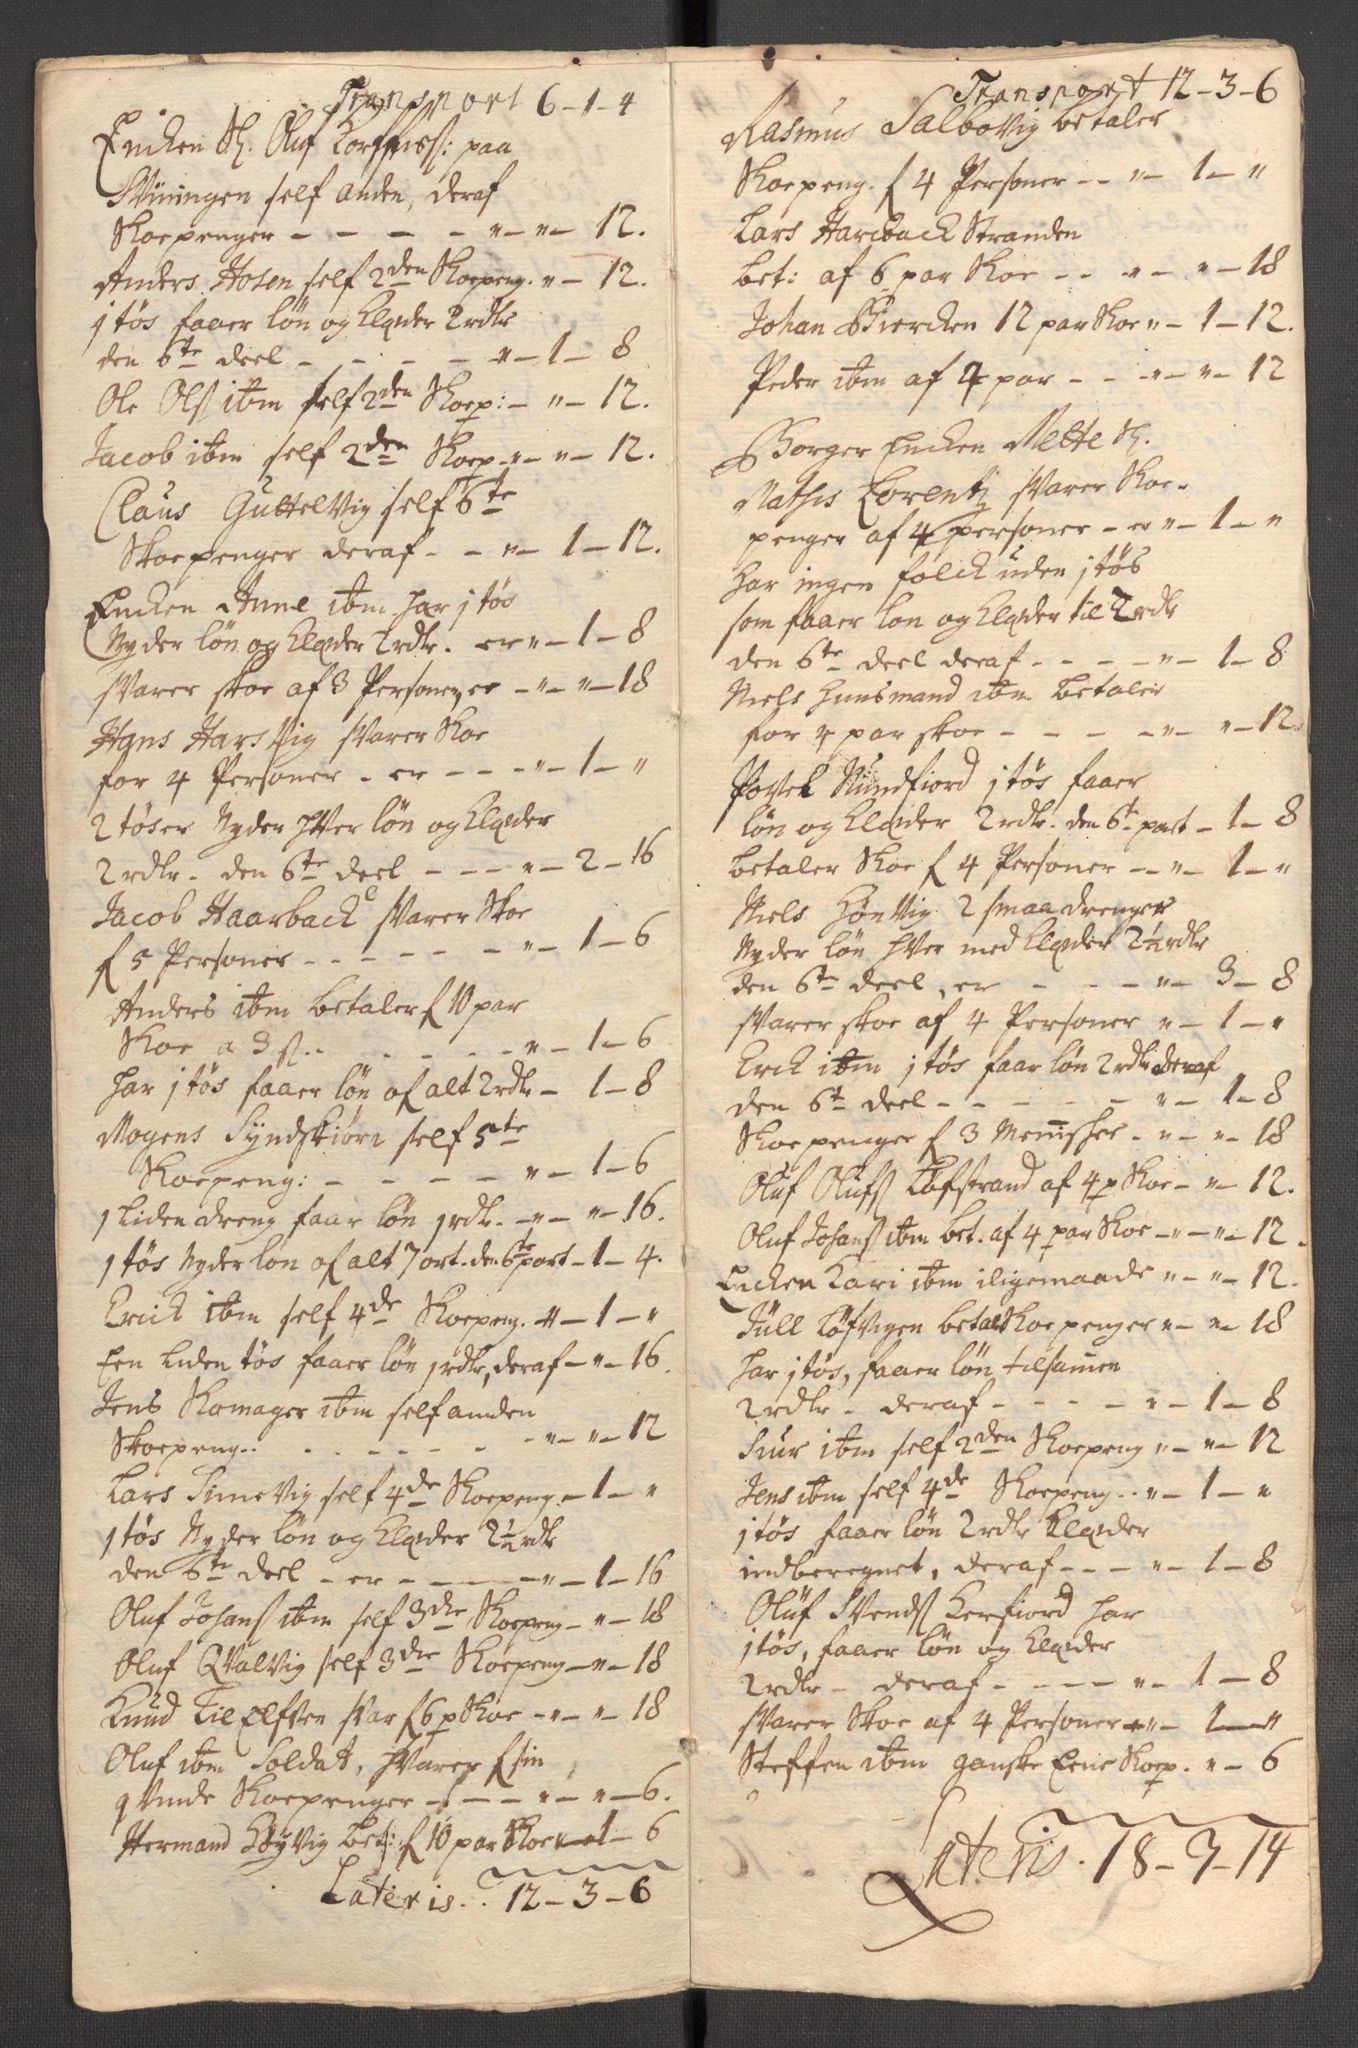 Transport 6-1-4
Encken Sl. Oluf Torffinss: paa
Sviningen self anden, deraf
Skoepenger - - - - " - " - 12.
Anders Hosen self 2den Skoepeng. " - 12.
1 tös faaer lön og Klæder 2 rdlr
den 6te deel - - - - " - 1 - 8
Ole Olss ibm self 2den Skoep: - " - 12.
Jacob ibm self 2den Skoep - " - " - 12.
Claus Guttelvig self 6te
Skoepenger deraf - - " - 1 - 12.
Encken Anne ibm har 1 tös
Nyder lön og Klæder 2 rdlr. er " - 1 - 8
svarer skoe af 3 Personer, er - " - " - 18
Hans Harsvig svarer Skoe
for 4 Personer - er - - - " - 1 - "
2 töser Nyder hver lön og Klæder
2 rdlr. den 6te deel - - - " - 2 - 16
Jacob Haarback svarer Skoe
f 5 Personer - - - - - " - 1 - 6
Anders ibm betaler f 10 par
Skoe a 3 s. - - - - - " - 1 - 6
har 1 tös faaer lön af alt 2 rdlr - 1 - 8
Mogens Syndskiörs self 5te
Skoepeng: - - - - " - 1 - 6
1 liden dreng faar lön 1 rdlr. - " - " - 16.
1 tös Nyder lön af alt 7 ort. den 6te part - 1 - 4.
Erick ibm self 4de Skoepeng. - " - 1 - "
Een liden tös faaer lön 1 rdlr, deraf - " - 16.
Jens Skomager ibm self anden
Skoepeng. - - - - - - " - " - 12
Lars Simevig self 4de Skoepeng. - 1 - "
1 tös Nyder lön og Klæder 2½ rdlr
den 6te deel - er - - - - " - 1 - 16
Oluf Johanss ibm self 3die Skoepeng - " - 18
Oluf Qvalvig self 3die Skoepeng - " - 18
Knud Tilelfven svar f 6 p Skoe - " - " - 18
Oluf ibm Soldat, svarer f sin
qvinde Skoepenger - - - - " - " - 6.
Hermand Höyvig bet: f 10 par Skoe " - 1 - 6
Lateris. . 12 - 3 - 6
Transport 12 - 3 - 6
Rasmus Salbovig betaler
Skoepeng. f 4 Personer - - " - 1 - "
Lars Harsback Stranden
bet: af 6 par Skoe - - " - " - 18
Johan Biercken 12 par Skoe " - 1 - 12.
Peder ibm af 4 par - - " - " - 12
Borger Encken Mette Sl.
Mathis Lorentz svarer Skoe-
penger af 4 personer - er " - 1 - "
har ingen folck uden 1 tös
som faaer lön og Klæder til 2 rdlr
den 6te deel deraf - - - - " - 1 - 8
Niels Huusmand ibm betaler
for 4 par skoe - - - - " - " - 12.
Povel Nundfiord 1 tös faaer
lön og Klæder 2 rdlr. den 6te part - 1 - 8
betaler Skoe f 4 Personer - - " - 1 - "
Niels Hönvig 2 smaa drenger
Nyder lön hver med Klæder 2½ rdlr
den 6te deel, er - - - " - 3 - 8
svarer skoe af 4 Personer " - 1 - "
Erick ibm 1 tös faar lön 2 rdlr deraf
den 6te deel - - - - - " - 1 - 8
Skoepenger f 3 Mennisker - " - " - 18
Oluf Olufss Löfstrand af 4 p Skoe - " - 12.
Oluf Johanss ibm bet. af 4 par Skoe - " - " - 12.
Encken Kari ibm iligemaade " - " - 12.
Jüll Löfvigen betal Skoepenger " - " - 18
har 1 tös, faaer lön tilsamen
2 rdlr - deraf - - - - " - 1 - 8
Siur ibm self 2den Skoepeng " - " - 12
Jens ibm self 4de Skoepeng. - " - 1 - "
1 tös faaer lön 2 rdlr Klæder
indberegnet, deraf - - - " - 1 - 8
Oluf Svendss Kerfiord har
1 tös, faaer lön og Klæder
2 rdlr - deraf - - - - " - 1 - 8
svarer Skoe af 4 Personer - " - 1 - "
Steffen ibm ganske Eene Skoep. " - 6
Lateris. 18 - 3 - 14